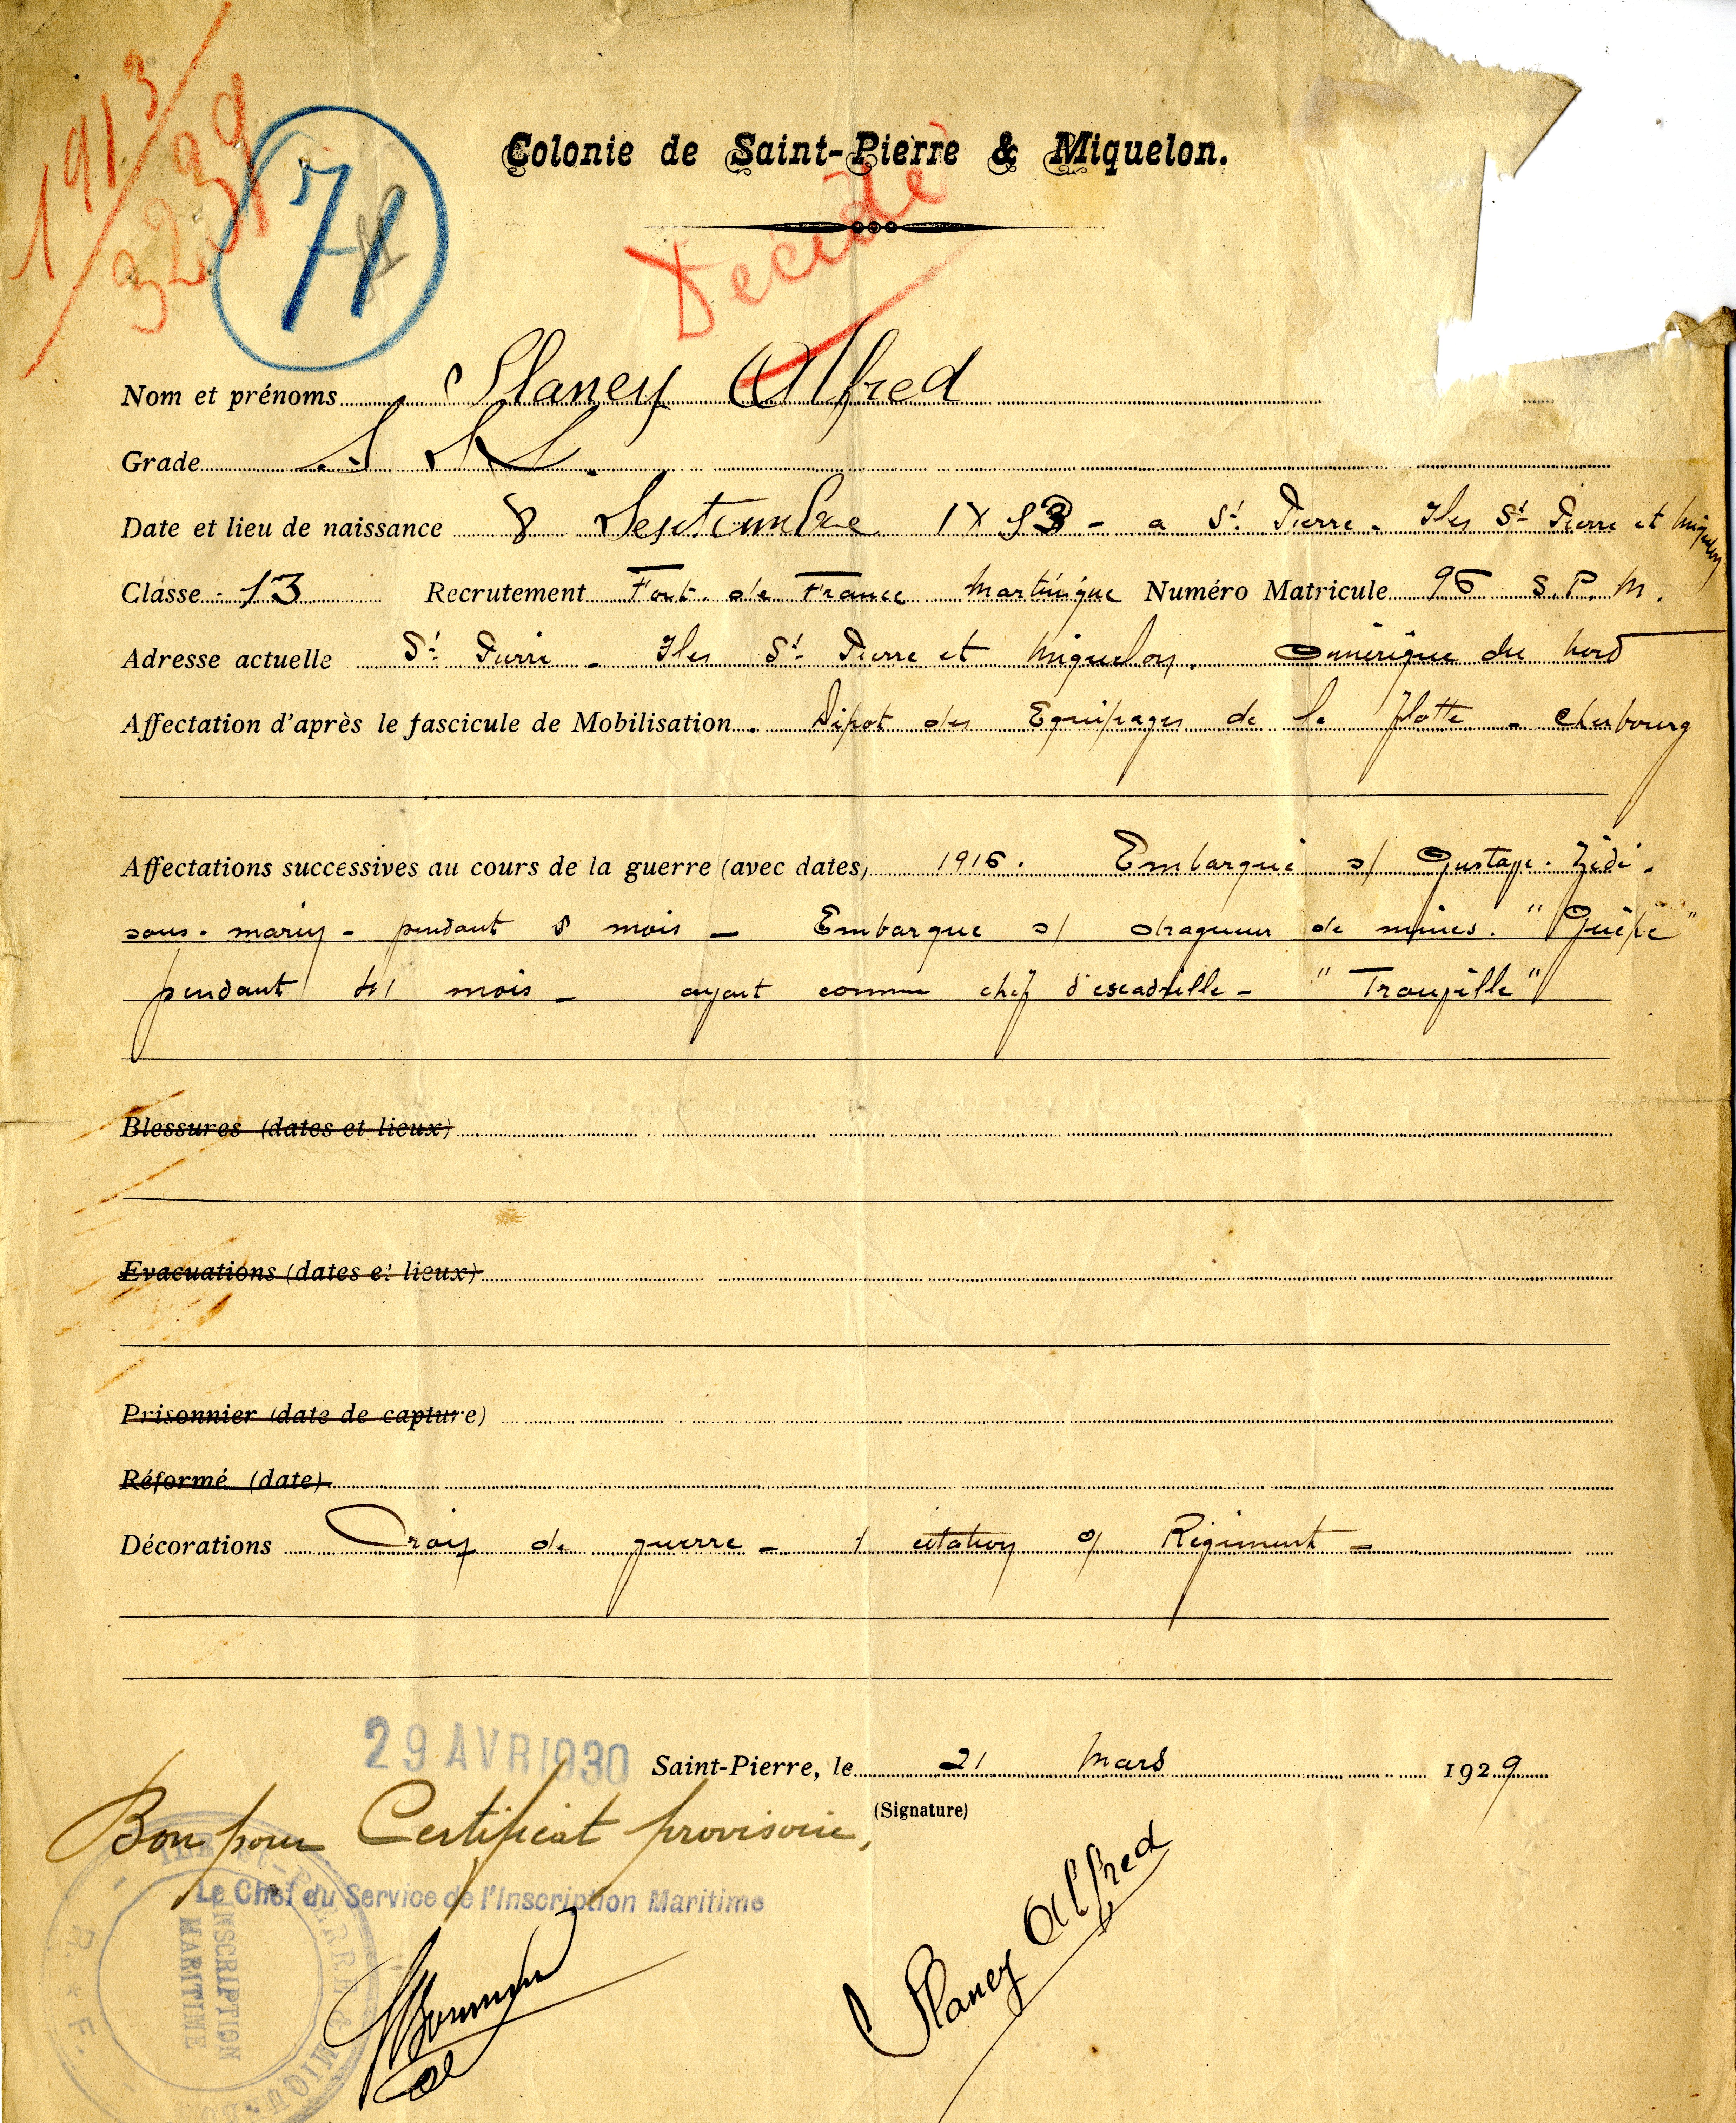 1913
3239
71
Colonie de Saint-Pierre & Miquelon.
Décidé
Nom et prénoms Slaney Alfred
Grade
Date et lieu de naissance 8 Septembre 1893 - a St. Pierre - Iles St Pierre et Miquelon
Classe 13 Recrutement Fort de France Martinique Numéro Matricule 95 S.P.M.
Adresse actuelle St. Pierre - Iles St Pierre et Miquelon. Amérique du Nord
Affectation d'après le fascicule de Mobilisation Dépot des Equipages de la flotte - Cherbourg
Affectations successives au cours de la guerre (avec dates) 1916. Embarqué s/ Gustave. Zédé.
sous. marin - pendant 8 mois - Embarque s/ dragueur de mines. "Guêpe"
pendant mois - ayant comme chef d'escadrille - "Troupille"
Blessures (dates et lieux)
Evacuations (dates et lieux)
Prisonnier (date de capture)
Réformé (date)
Décorations Croix de guerre - 1 citation o/ Régiment -
29 AVR 1930
Saint-Pierre, le 21 Mars 1929
(Signature)
Bon pour Certificat provisoire,
Le Chef du Service de l'Inscription Maritime
INSCRIPTION
MARITIME
R * F
Slaney Alfred